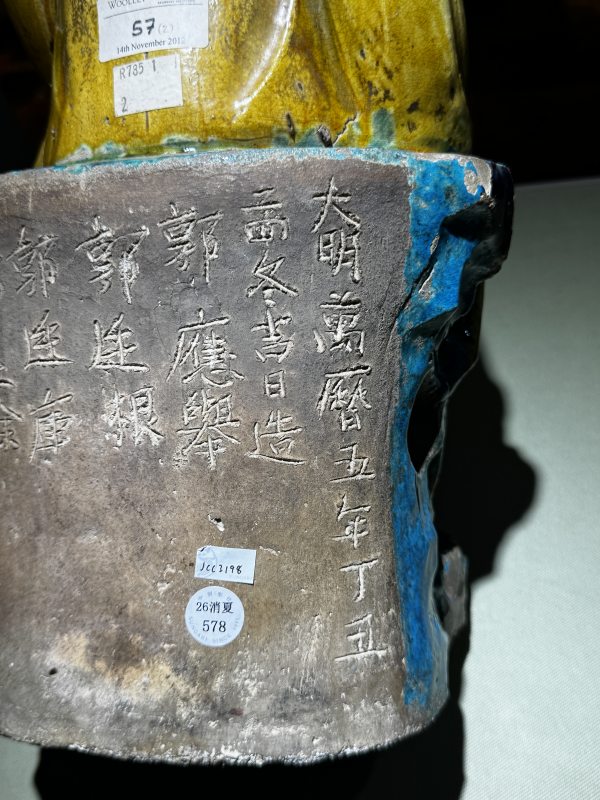 WOOLLEY
57 (2)
14th November
R785 1
2
大明萬曆五年丁丑
孟冬吉日造
郭應舉
郭根
郭
JCC2198
26消夏
578